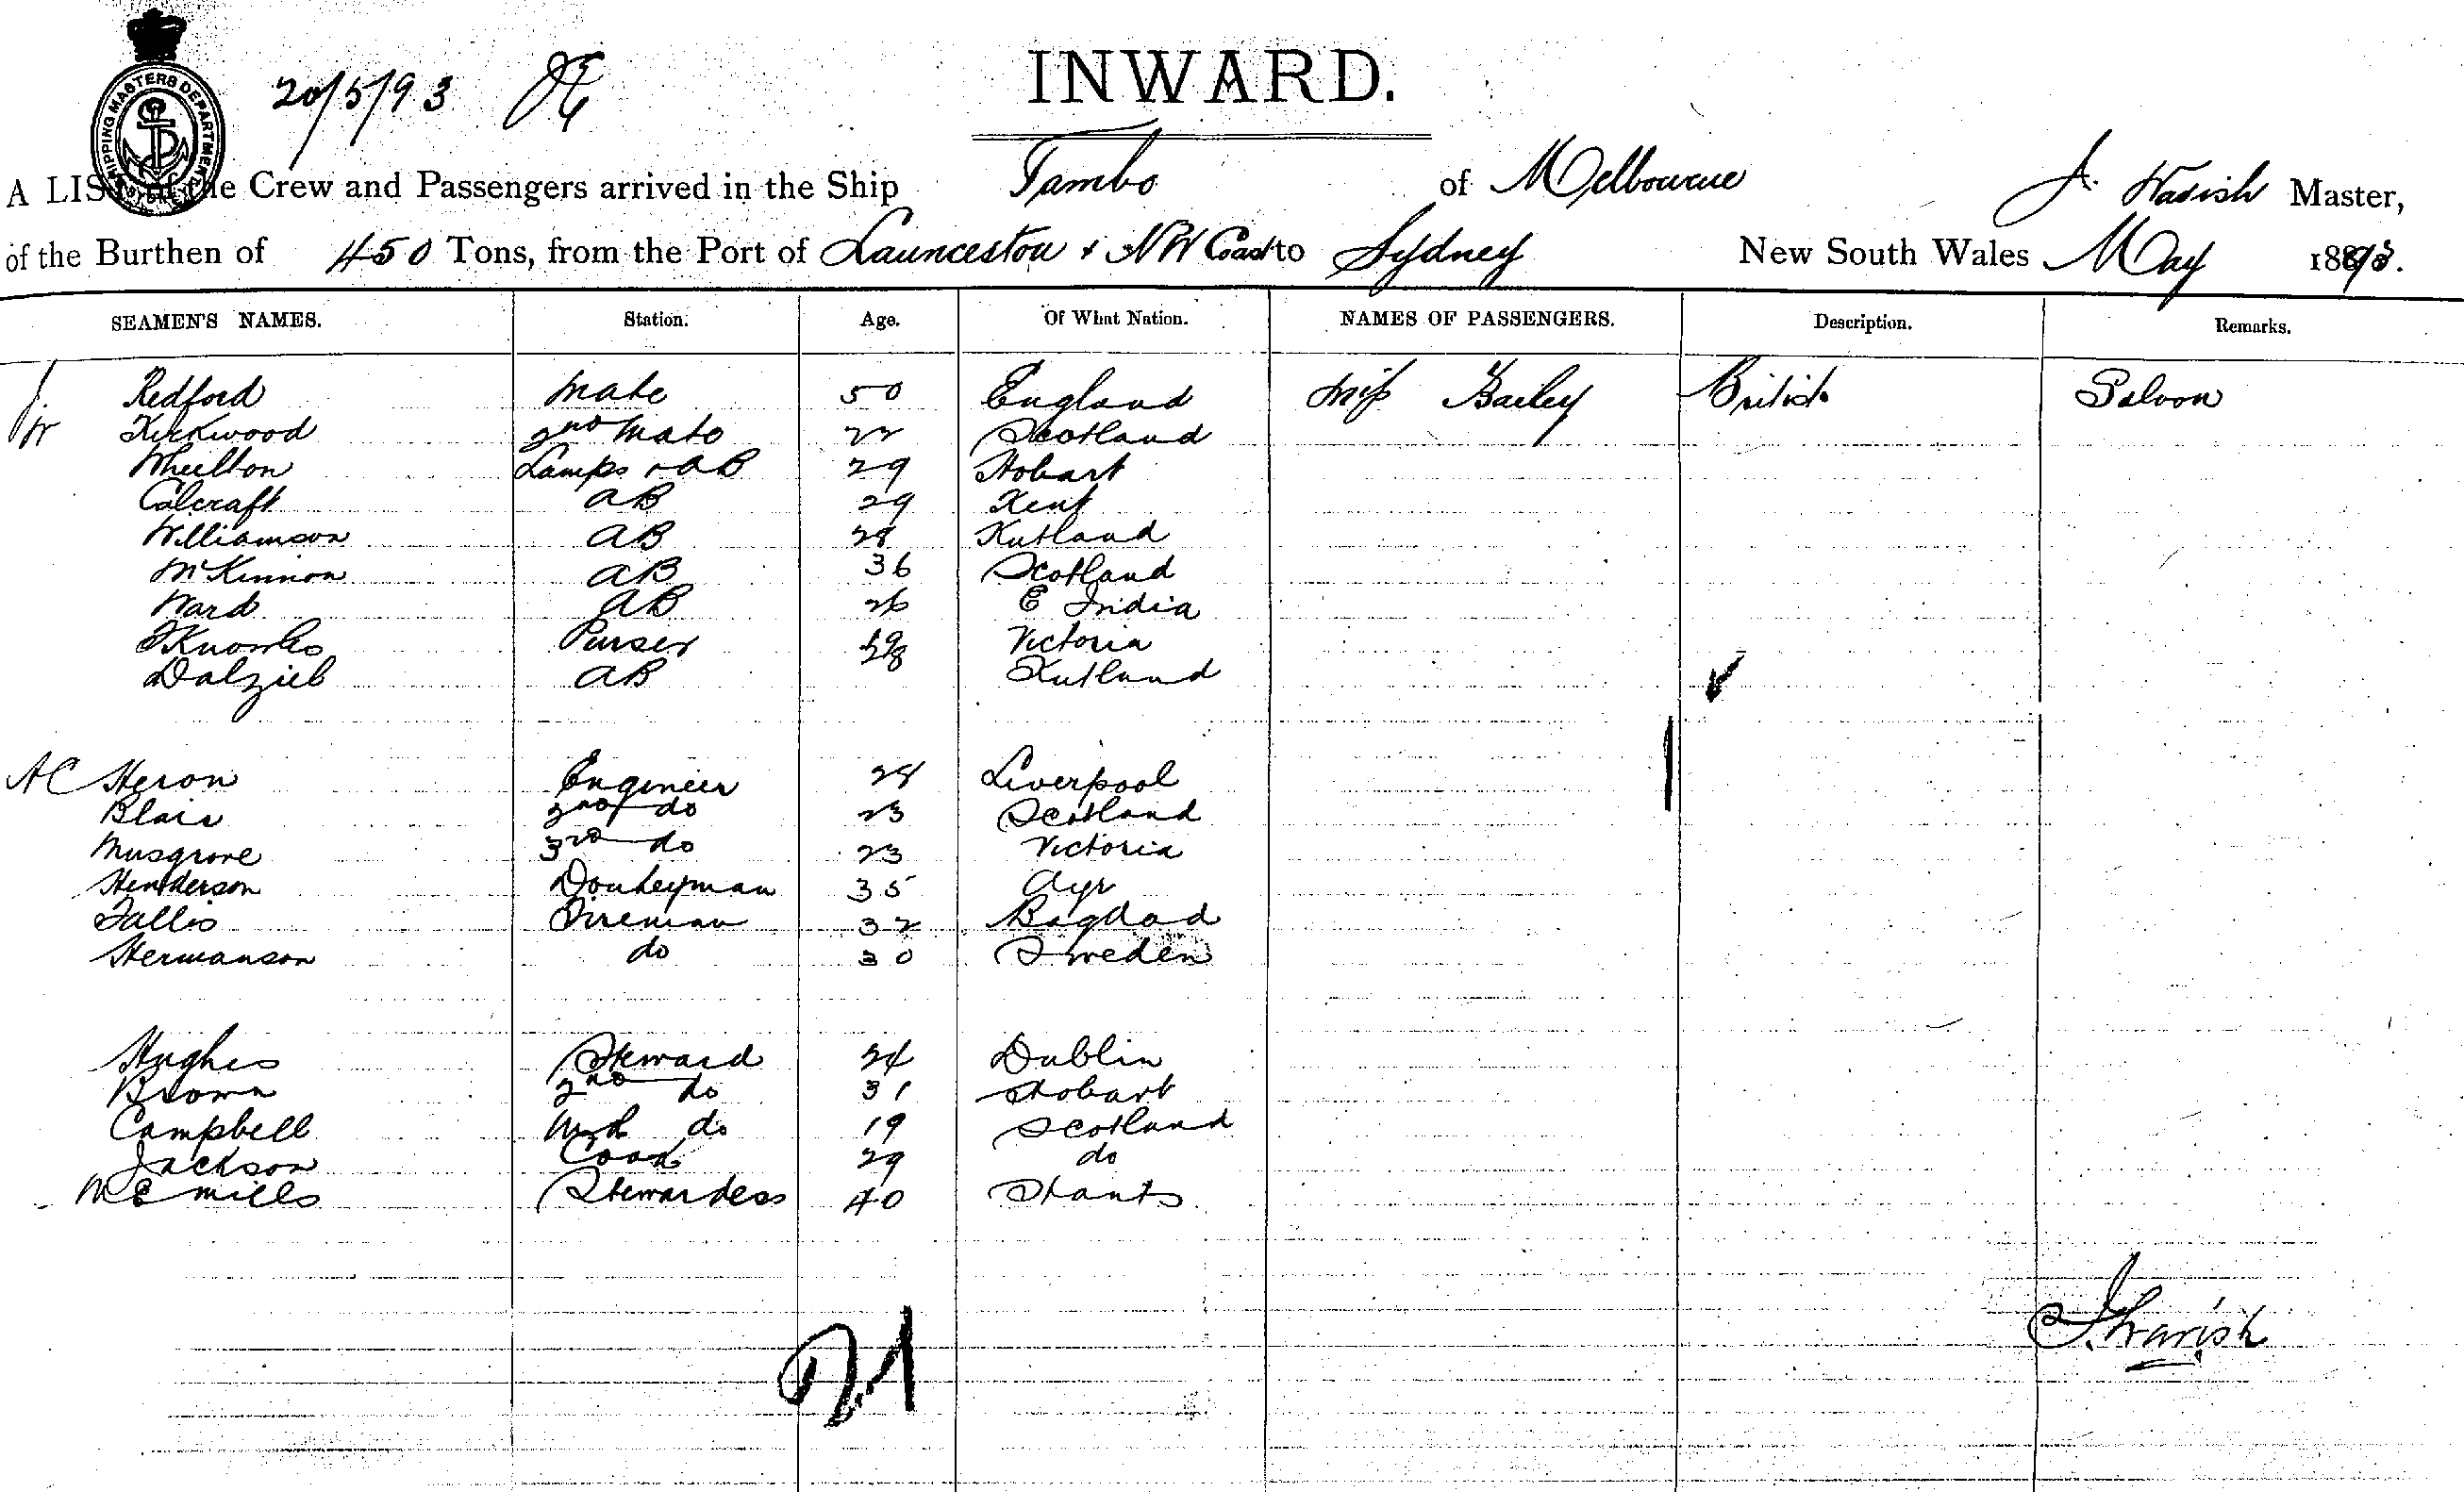 SHIPPING MASTERS DEPARTMENT
20/5/93
INWARD.
A LIST of the Crew and Passengers arrived in the Ship Tambo of Melbourne J. Warish Master,
of the Burthen of 450 Tons, from the Port of Launceston & NW Coast to Sydney New South Wales May 1893.
SEAMEN'S NAMES. Station. Age. Of What Nation. NAMES OF PASSENGERS. Description. Remarks.
J. Redford Mate 50 England Miss Bailey British Saloon
W Kirkwood 2nd Mate 22 Scotland
Wheelton Lamps & AB 29 Hobart
Calcraft AB 29 Kent
Williamson AB 28
McKinnon AB 36 Scotland
Ward AB 26 E India
Knowles Purser Victoria
Dalziel AB 28
AC Heron Engineer 28 Liverpool
Blair 2nd do 23 Scotland
Musgrove 3rd do 23 Victoria
Henderson Donkeyman 35 Ayr
Fallis Fireman 32 Bagdad
Hermanson do 30 Sweden
Hughes Steward 24 Dublin
Brown 2nd do 31 Hobart
Campbell do 19 Scotland
Jackson Cook 29 do
M E Mills Stewardess 40 Hants
J. Warish
21